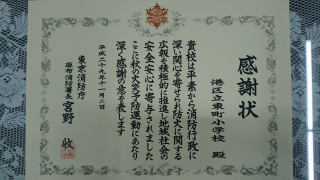 感謝状
港区立東町小学校 殿
貴校は平素から消防行政に
深い関心を寄せられ防火に関する
広報を積極的に推進し地域社会の
安全安心に寄与されました
ここに秋の火災予防運動にあたり
深く感謝の意を表します
平成二十九年十一月二日
東京消防庁
麻布消防署長 宮野 收